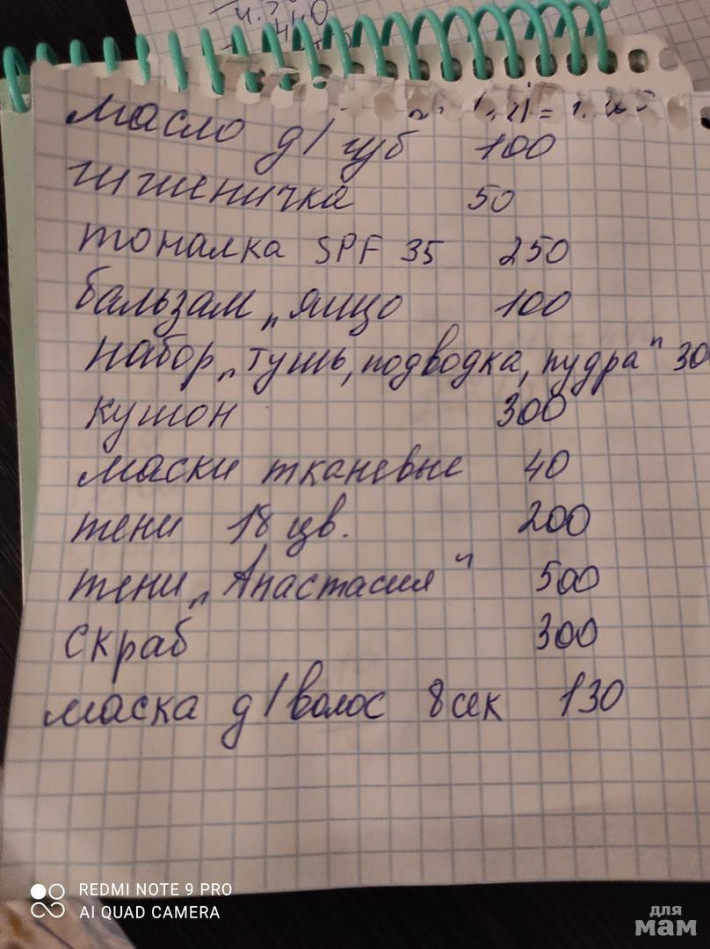 н.
масло д/губ 100
гигиеничка 50
тоналка SPF 35 250
бальзам „яйцо 100
набор „тушь, подводка, пудра" 30
кушон 300
маски тканевые 40
тени 18 цв. 200
тени „Анастасия" 500
скраб 300
маска д/волос 8сек 130
REDMI NOTE 9 PRO
AI QUAD CAMERA
для
мам